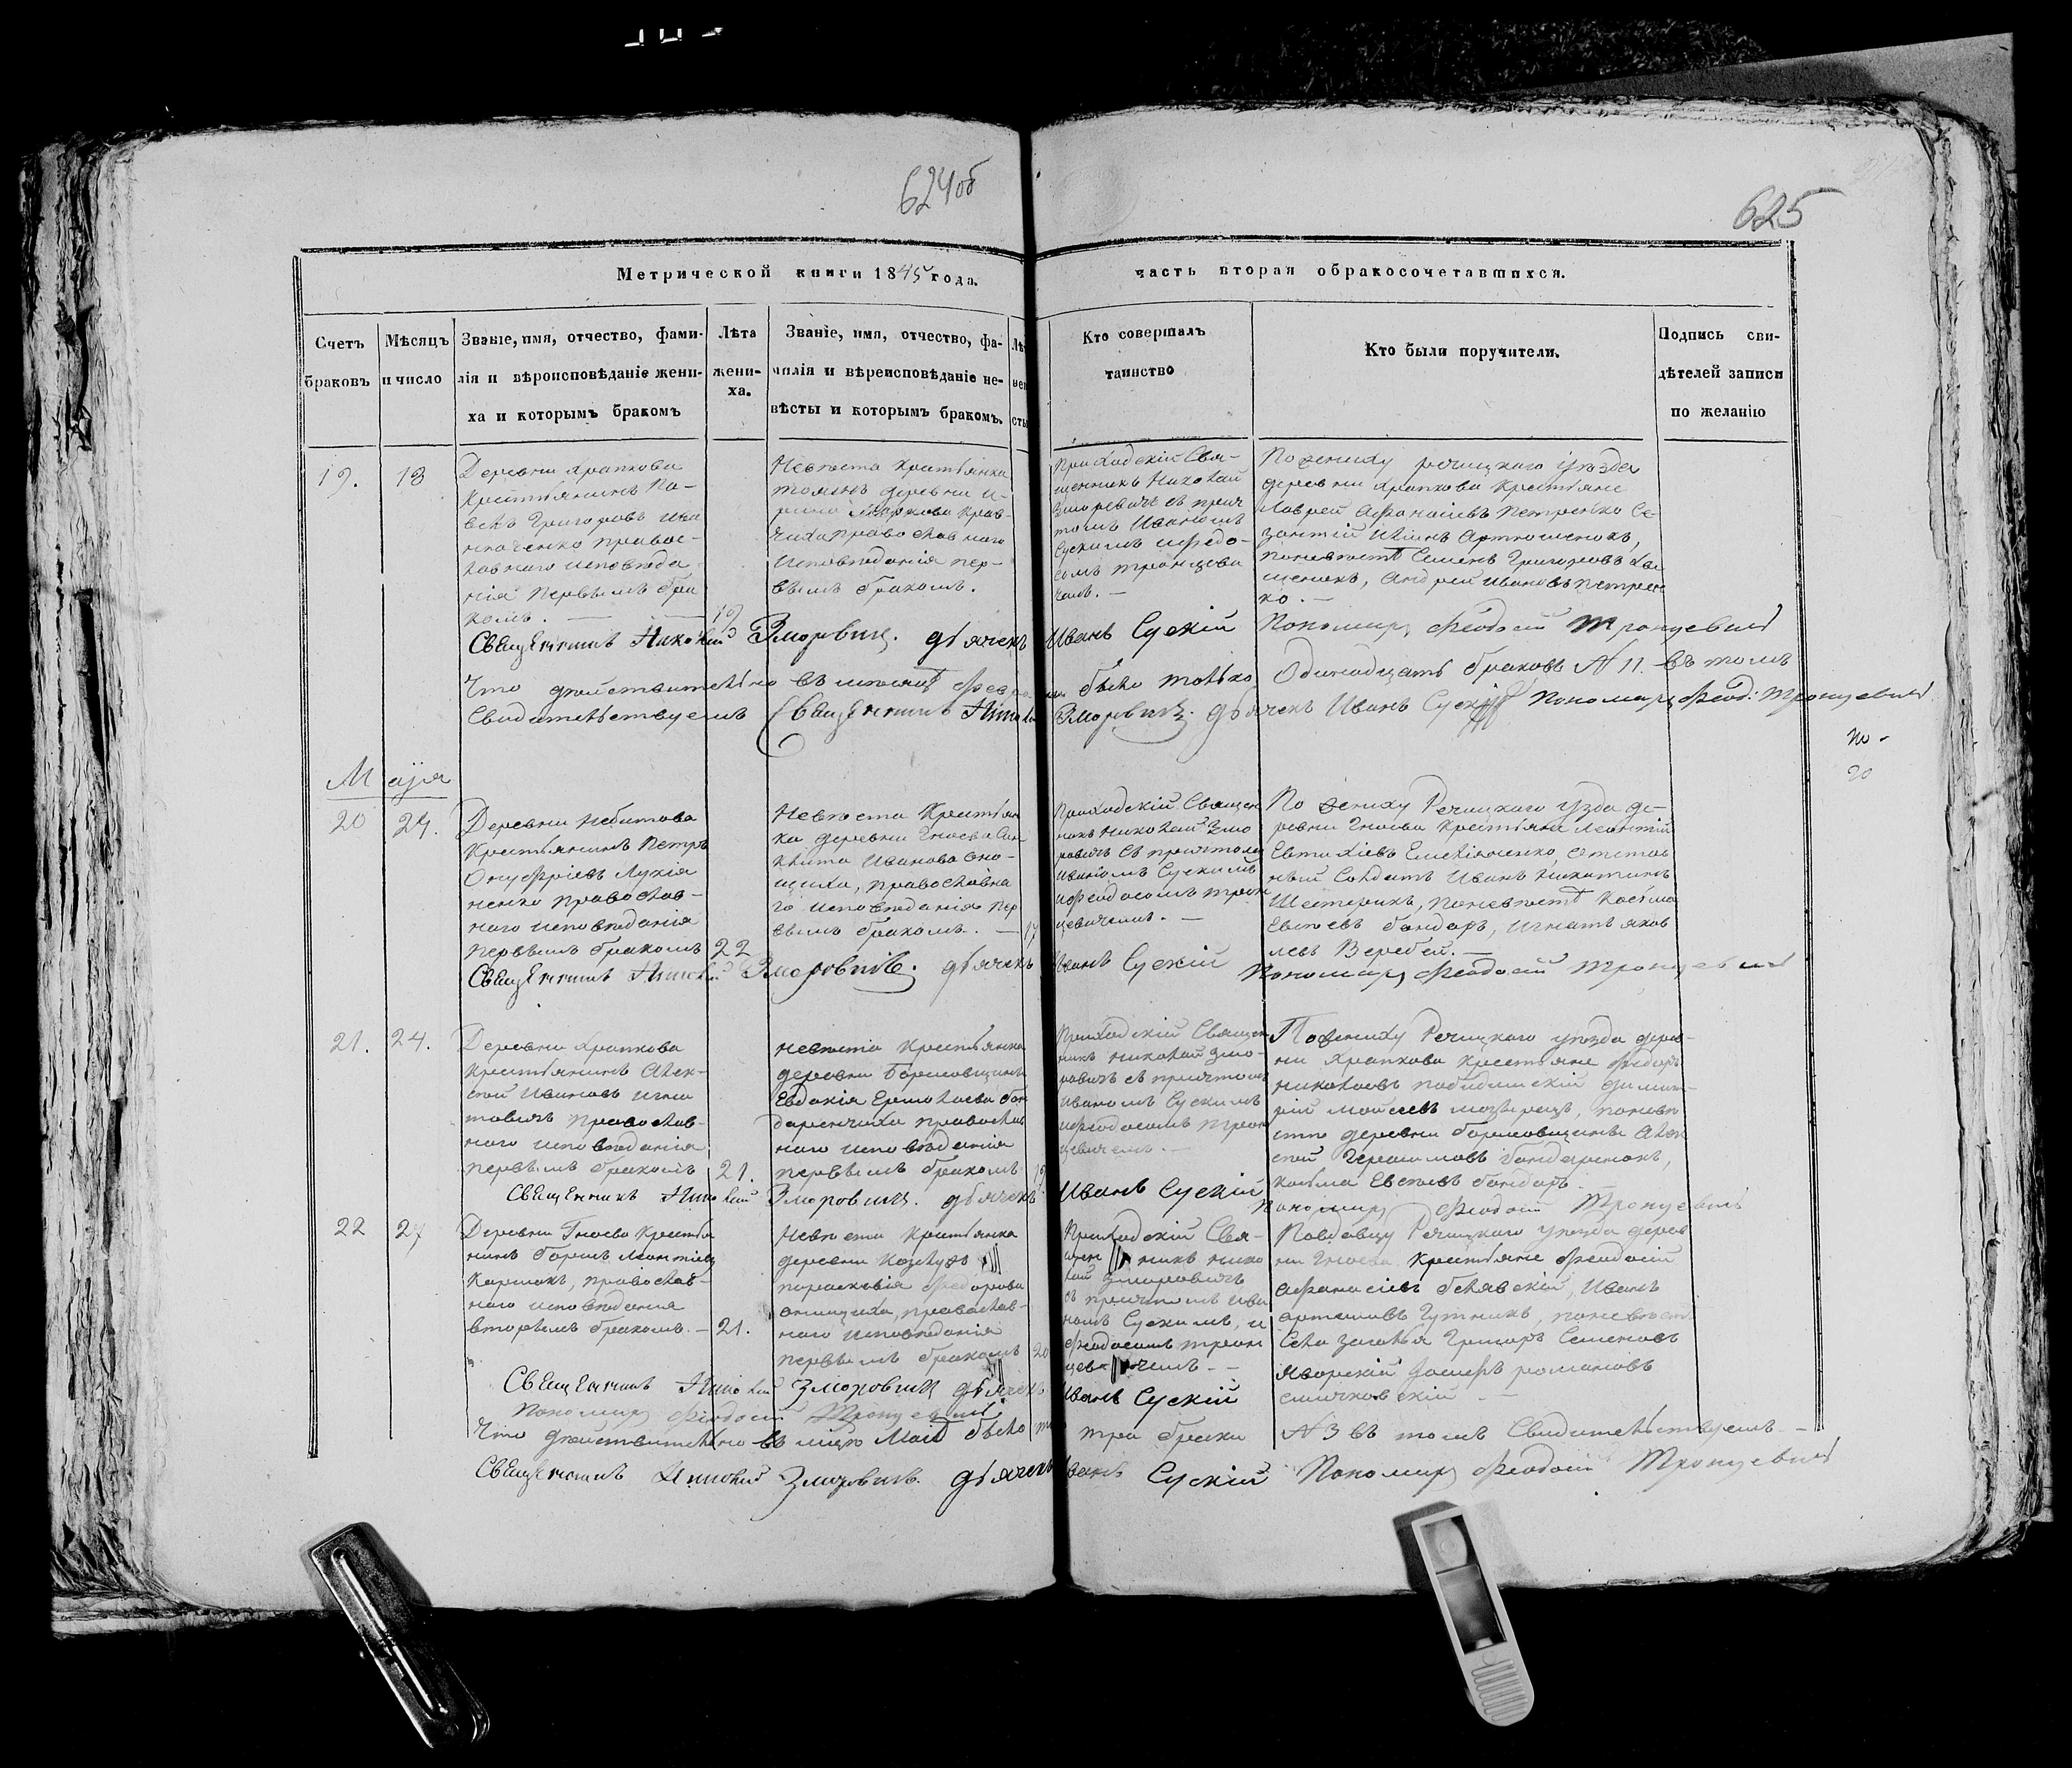 624об
625
Метрической книги 1845 года.
часть вторая обракосочетавшихся.
Счетъ браковъ
Мѣсяцъ и число
Званіе, имя, отчество, фами-
лія и вѣроисповѣданіе жени-
ха и которымъ бракомъ
Лѣта
жени-
ха.
Званіе, имя, отчество, фа-
милія и вѣреисповѣданіе не-
вѣсты и которымъ бракомъ.
Кто совершалъ
таинство
Кто были поручители.
Подпись сви-
дѣтелей записи
по желанію
19.
18
Деревни Храпкова
Крестьянинъ Па-
велъ Григоровъ
православ-
наго исповѣда
нія первымъ бра
комъ. —
19
Невѣста Крестьянка
тоижъ деревни И-
рина Маркова Крав-
чиха православнаго
исповѣданія пер-
вымъ бракомъ.
Приходскій Свя-
щенникъ Николай
Зморовичъ съ прич
томъ Иваномъ
Сускимъ и Ѳедо-
сомъ Тронцеви
чемъ. —
По жениху речицкаго уѣзда
деревни Храпкова Крестьяне
Лаврей Афанасіевъ Петренко
Артюшенокъ,
поневѣстѣ Семенъ Григоровъ
Андрей Ивановъ Петрен
ко. —
Священникъ Николай Зморовичъ. дьячекъ Иванъ Сускій Пономарь Феодосій Тронцевичъ
Что дѣйствительно въ мѣсяцѣ февралѣ было только Одинадцать браковъ N 11. въ томъ
Свидетельствуемъ Священникъ Николай Зморовичъ. дьячекъ Иванъ Сускій Пономарь Феод: Тронцевичъ
Маія
20
24.
Деревни Небытова
Крестьянинъ Петръ
Онуфріевъ Лухія
ненко православ-
наго исповѣданія
первымъ бракомъ
22
Невѣста Крестьян
ка деревни Гноева
Иванова Оно-
щиха, православна
го исповѣданія пер
вымъ бракомъ. —
17
Приходскій Священ
никъ Николай Змо
ровичъ съ причтомъ
Иваномъ Сускимъ
и Феодосомъ Трон
цевичемъ. —
По жениху Речицкаго уѣзда де-
ревни Гноева Крестьяне Леонтій
Евтихіевъ Емельяненко, Отстав
ный Солдатъ Иванъ Никитинъ
Шестерикъ, поневѣстѣ Косьма
Евсѣевъ бондарь, Игнатъ Яков
левъ Веребей. —
Священникъ Николай Зморовичъ. дьячекъ Иванъ Сускій Пономарь Феодосій Тронцевичъ
21.
24.
Деревни Храпкова
Крестьянинъ Алек-
сей Ивановъ Игна
товичъ православ-
наго исповѣданія
первымъ бракомъ
21.
Невѣста Крестьянка
деревни Борисовщины
Евдокія Ермолаева бон
даренчиха православ
наго исповѣданія
первымъ бракомъ
19
Приходскій Священ
никъ Николай Змо-
ровичъ съ причтомъ
Иваномъ Сускимъ
и Феодосомъ Трон
цевичемъ. —
По жениху Речицкаго уѣзда дерев-
ни Храпкова Крестьяне Федоръ
Николаевъ Дими-
трій Моисеевъ поневѣ
стѣ деревни Борисовщины Алек
сей Герасимовъ бондаренокъ,
Косьма Евсѣевъ бондарь. —
Священникъ Николай Зморовичъ. дьячекъ Иванъ Сускій Пономарь Феодосій Тронцевичъ
22
27
Деревни Гноева Крестья
нинъ Борисъ Леонтіевъ
православ-
наго исповѣданія
вторымъ бракомъ. —
21.
Невѣста Крестьянка
деревни Козлуръ
Параскевія Федорова
Онищиха, православ-
наго исповѣданія
первымъ бракомъ
20
Приходскій Свя-
щенникъ Нико
лай Зморовичъ
съ причтомъ Ива
номъ Сускимъ, и
Феодосомъ Трон
цевичемъ. —
По вдовцу Речицкаго уѣзда дерев
ни Гноева Крестьяне Феодосій
Афанасіевъ Белявскій, Иванъ
Артемовъ Гутникъ, поневѣстѣ
Села Загалья Григоръ Семеновъ
Яворскій Романовъ
Священникъ Николай Зморовичъ дьячекъ Иванъ Сускій
Пономарь Феодосій Тронцевичъ
Что дѣйствительно въ мѣсяцѣ Маѣ было три браки N 3 въ томъ Свидительствуемъ. —
Священникъ Николай Зморовичъ. дьячекъ Иванъ Сускій Пономарь Феодосій Тронцевичъ